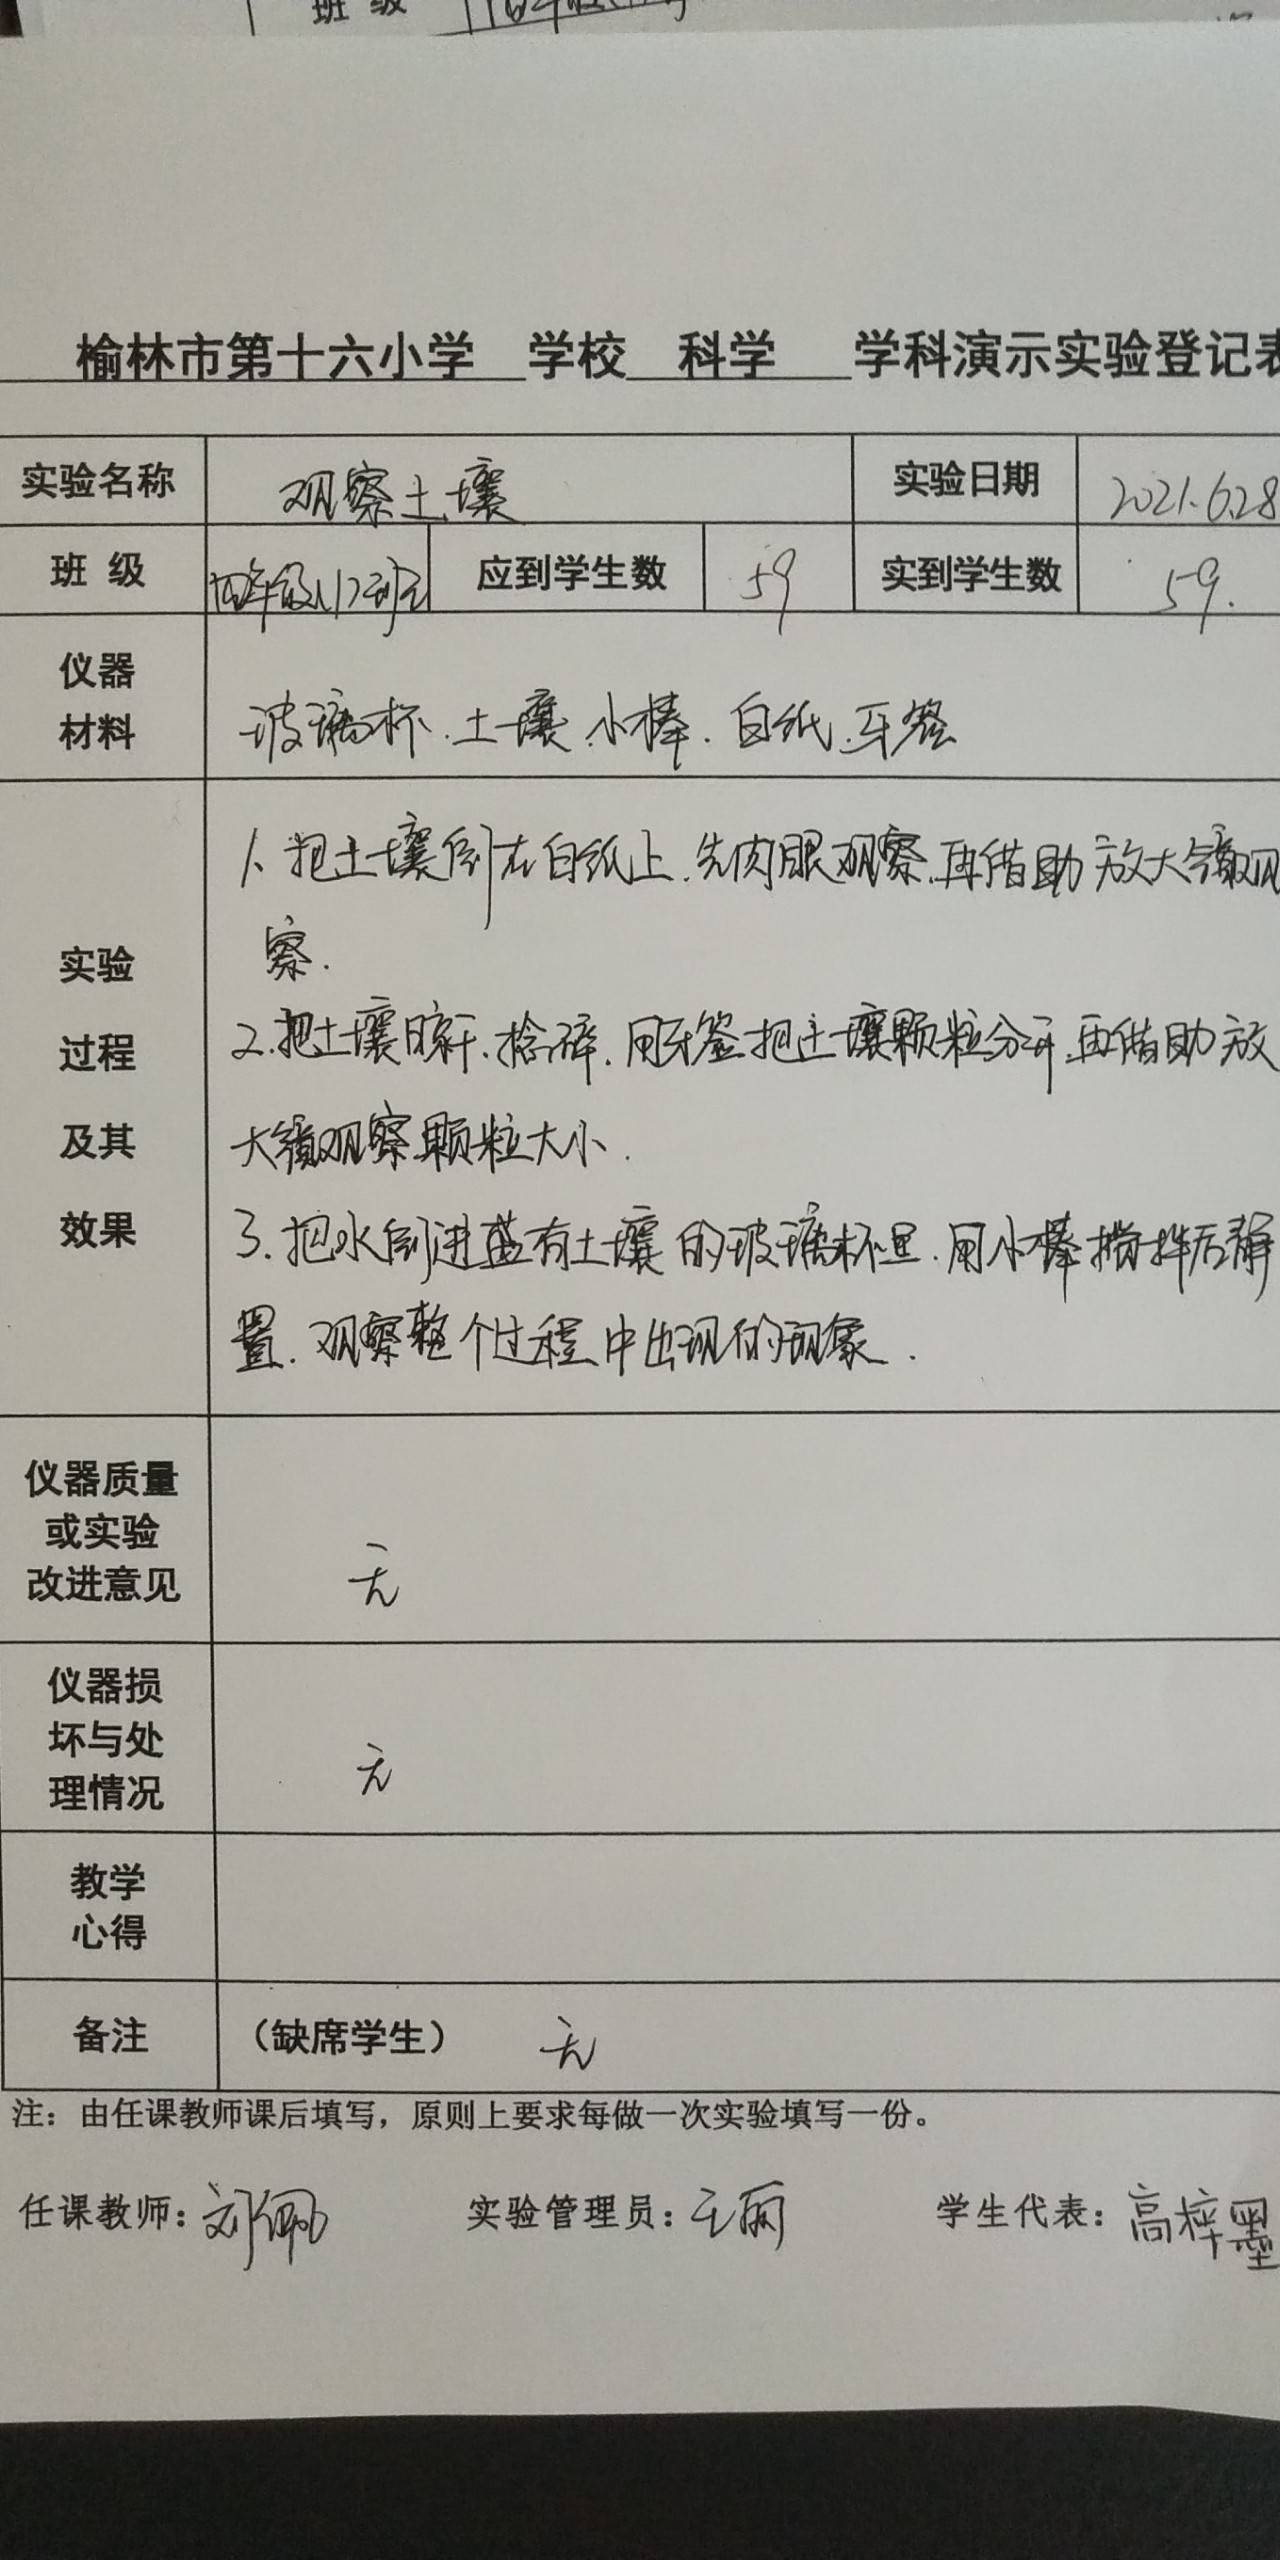 班 级
榆林市第十六小学 学校 科学 学科演示实验登记表
实验名称 观察土壤 实验日期 2021.6.28
班 级 四年级(1)班 应到学生数 59 实到学生数 59.
仪器
材料
玻璃杯.土壤.小棒.白纸.牙签
实验
过程
及其
效果
1、把土壤倒在白纸上.先肉眼观察.再借助放大镜观
察.
2.把土壤晾干、捻碎.用牙签把土壤颗粒分开.再借助放
大镜观察颗粒大小.
3.把水倒进盛有土壤的玻璃杯里.用小棒搅拌后静
置.观察整个过程中出现的现象.
仪器质量
或实验
改进意见
无
仪器损
坏与处
理情况
无
教学
心得
备注 （缺席学生） 无
注：由任课教师课后填写，原则上要求每做一次实验填写一份。
任课教师：刘佩 实验管理员：王丽 学生代表：高梓墨